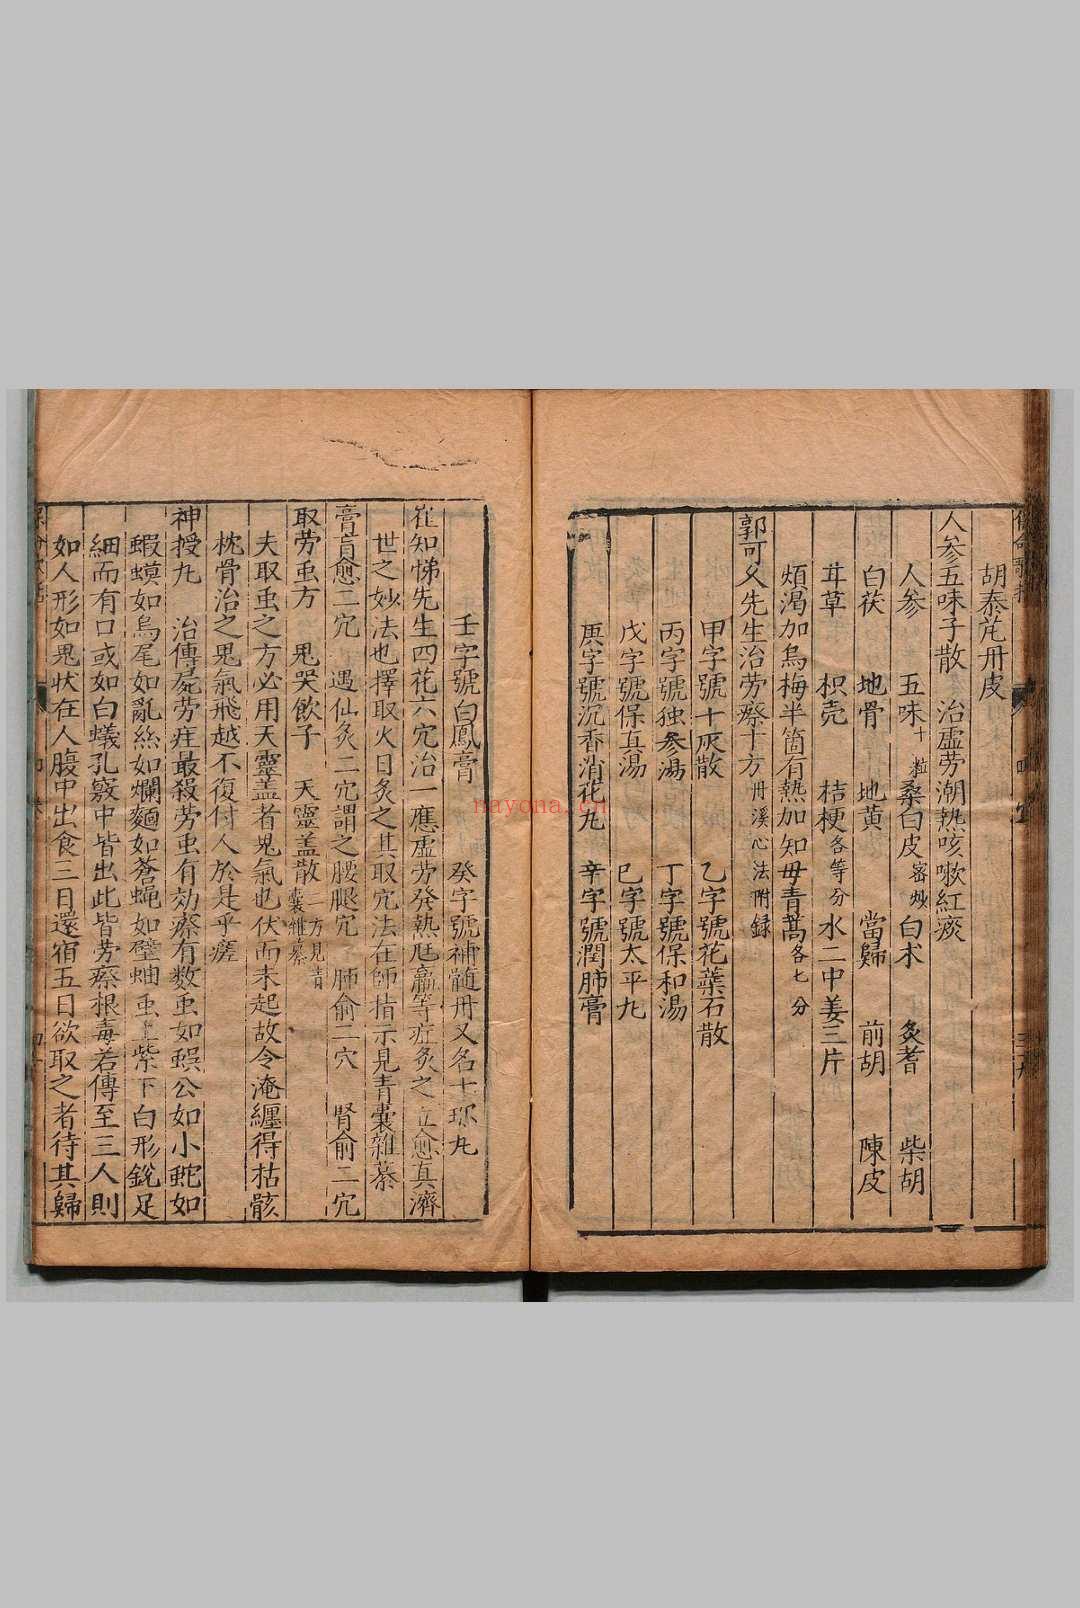 胡泰芃丹皮
人參五味子散　治虛劳潮熱咳嗽紅痰
人參　五味十粒　桑白皮密炒　白术　炙耆　柴胡
白茯　地骨　地黄　當歸　前胡　陳皮
甘草　枳壳　桔梗各等分　水二中姜三片
煩渴加烏梅半箇有熱加知毋青蒿各七分
郭可乂先生治劳瘵十方丹溪心法附録
甲字號十灰散　乙字號花蘂石散
丙字號独參湯　丁字號保和湯
戊字號保真湯　巳字號太平丸
庚字號沉香消花丸　辛字號潤肺膏
壬字號白鳳膏　癸字號補髓丹又名十珎丸
崔知悌先生四花六穴治一應虛劳發熱尫羸等症灸之立愈真濟
世之妙法也擇取火日灸之其取穴法在師指示見青囊雜纂
膏肓愈二穴　遇仙灸二穴謂之腰腿穴　肺俞二穴　腎俞二穴
取劳虫方　鬼哭飲子　天靈盖散二方見青囊雜纂
夫取虫之方必用天靈盖者鬼氣也伏而未起故令淹纏得枯骸
枕骨治之鬼氣飛越不復付人於是乎瘥
神授丸　治傳屍劳疰最殺劳虫有効瘵有数虫如蜈公如小蛇如
蝦蟆如烏尾如亂絲如爛麵如蒼蝇如壁蚰虫上紫下白形銳足
細而有口或如白蟻孔竅中皆出此皆劳瘵根毒若傳至三人則
如人形如鬼状在人腹中出食三日還宿五日欲取之者待其歸
nayona.cn